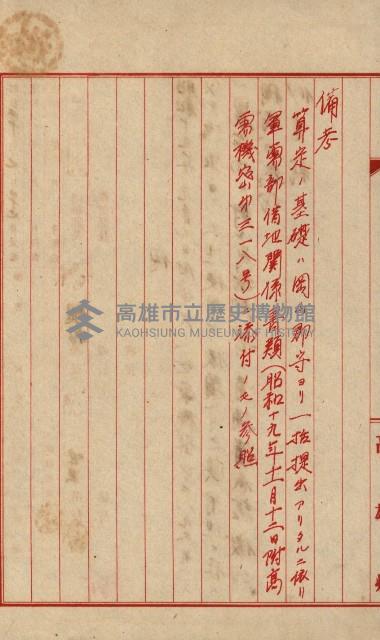 備考
算定ノ基礎ハ岡山郡守ヨリ一括提出アリタルニ依リ
軍事部借地関係書類(昭和十九年十一月十二日附高
軍機密第三一八号)ニ添付ノモノ参照
高雄市立歷史博物館
KAOHSIUNG MUSEUM OF HISTORY
高雄